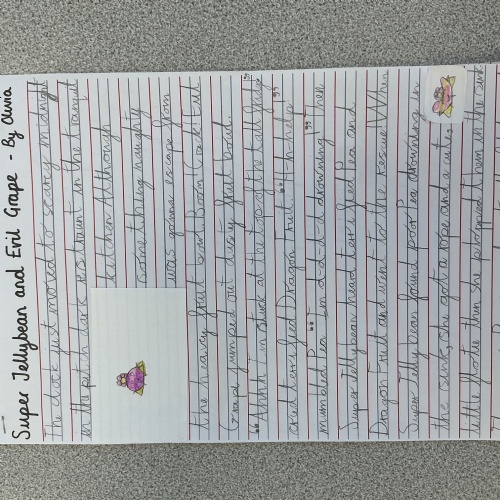 Super Jellybean and Evil Grape - By Olivia
The clock just moved to scary midnight
in the pitch dark restraunt in the tranquil
kitchen. Although
something naughty
was gonna escape from
the heavy fruit bowl Boom! Crack! Evil
Grape jumped out dusty fruit bowl.
"Ahhh! I'm stuck at the top of the tall fridge"
cried terrified Dragon Fruit. "H-h-help
mumbled Pea "I'm d-d-d-d-drowning" Then
Super Jellybean heard terrafied Pea and
Dragon Fruit and went to the rescue. When
Super Jelly bean found poor Pea drowning in
the sink, she got a rope and a cute
little floatie then she plopped them in the sink